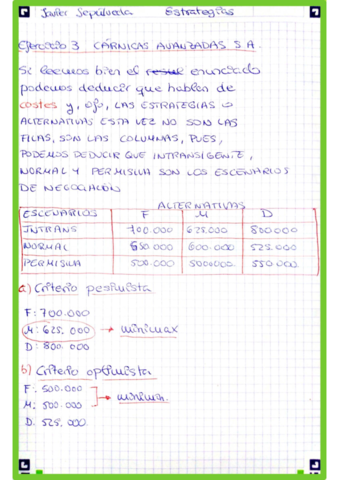 Javier Sepúlveda Estrategias
Ejercicio 3 CÁRNICAS AVANZADAS S.A.
Si leemos bien el enunciado
podemos deducir que hablan de
costes y, ojo, LAS ESTRATEGIAS O
ALTERNATIVAS ESTA VEZ NO SON LAS
FILAS, SON LAS COLUMNAS, PUES,
PODEMOS DEDUCIR QUE INTRANSIGENTE,
NORMAL Y PERMISIVA SON LOS ESCENARIOS
DE NEGOCIACIÓN
ALTERNATIVAS
ESCENARIOS F M D
INTRANS 700.000 625.000 800.000
NORMAL 650.000 600.000 525.000
PERMISIVA 500.000 500.000 550.000
a) Criterio pesimista
F: 700.000
M: 625.000 → minimax
D: 800.000
b) Criterio optimista
F: 500.000
M: 500.000 → minimin.
D: 525.000